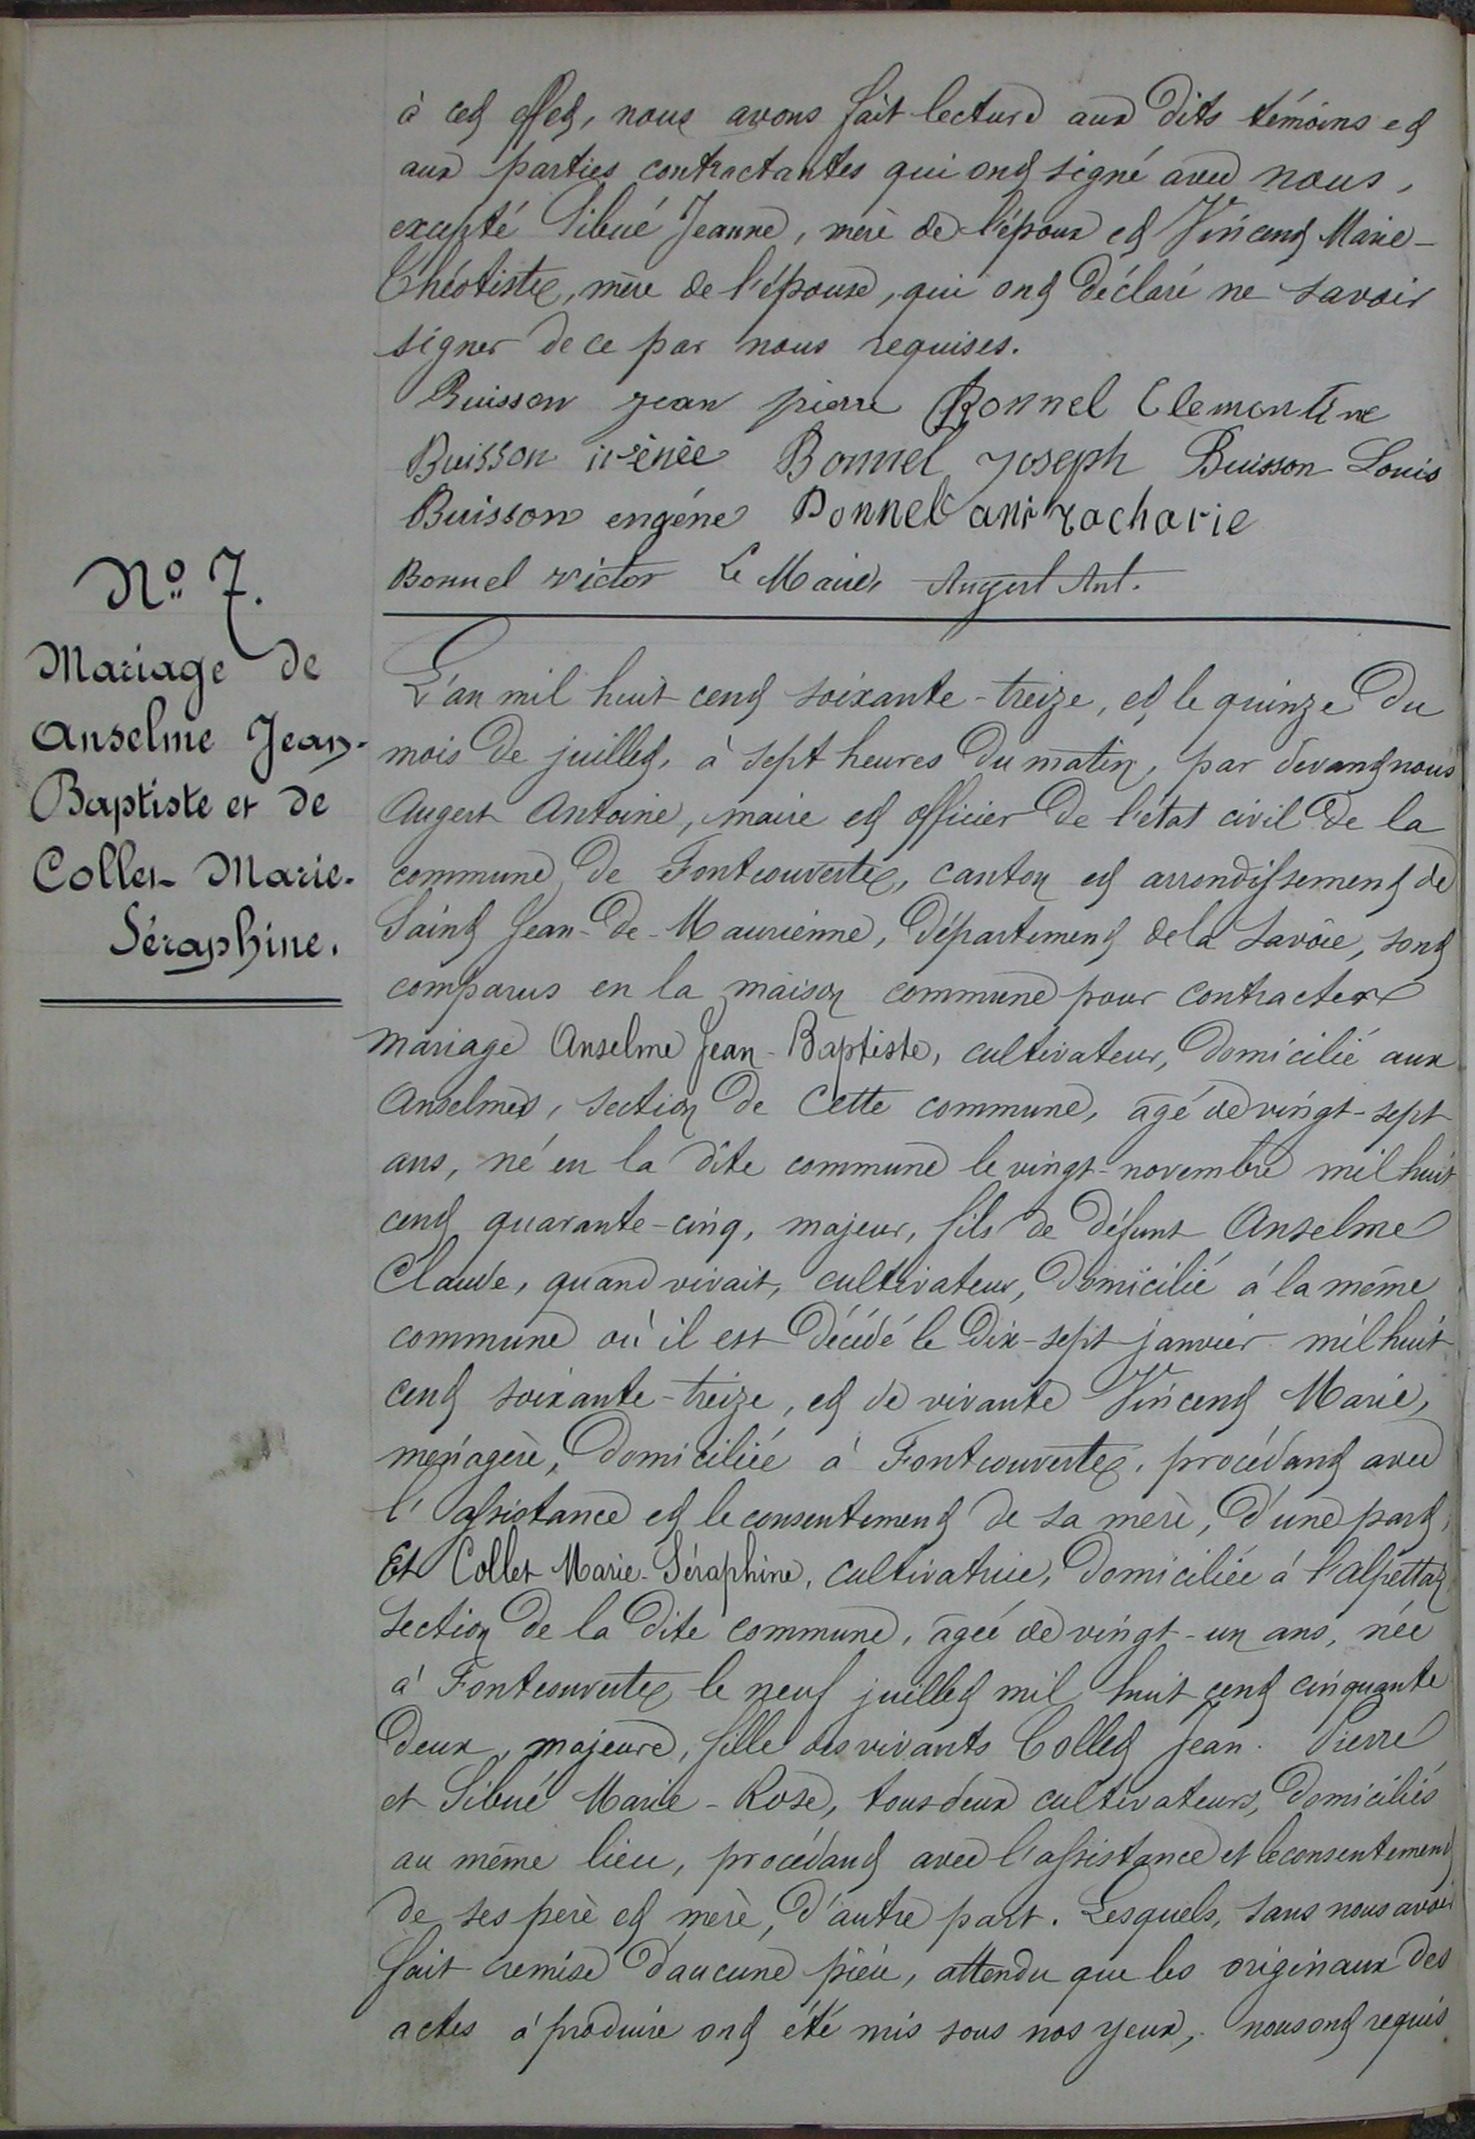 à cet effet, nous avons fait lecture aux dits témoins et
aux parties contractantes qui ont signé avec nous,
excepté Sibué Jeanne, mère de l'époux et Vincent Marie-
Théotiste, mère de l'épouse, qui ont déclaré ne savoir
signer de ce par nous requises.
Buisson jean pierre Bonnel Clementine
Buisson irénée Bonnel joseph Buisson Louis
Buisson eugéne Bonnel zacharie
Bonnel victor Le Maire, Augert Ant.
No 7.
Mariage de
Anselme Jean-
Baptiste et de
Collet Marie-
Séraphine.
L'an mil huit cent soixante-treize, et le quinze du
mois de juillet, à sept heures du matin, par devant nous
Augert Antoine, maire et officier de l'état civil de la
commune de Fontcouverte, canton et arrondissement de
Saint Jean-de-Maurienne, département de la Savoie, sont
comparus en la maison commune pour contracter
mariage Anselme Jean-Baptiste, cultivateur, domicilié aux
Anselmes, section de cette commune, agé de vingt-sept
ans, né en la dite commune le vingt-novembre mil huit
cent quarante-cinq, majeur, fils de défunt Anselme
Claude, quand vivait, cultivateur, domicilié à la même
commune où il est décédé le dix-sept janvier mil huit
cent soixante-treize, et de vivante Vincent Marie,
ménagère, domiciliée à Fontcouverte, procédant avec
l'assistance et le consentement de sa mère, d'une part,
Et Collet Marie-Séraphine, cultivatrice, domiciliée à l'alpettaz
section de la dite commune, agée de vingt-un ans, née
à Fontcouverte le neuf juillet mil huit cent cinquante
deux, majeure, fille des vivants Collet Jean-Pierre
et Sibué Marie-Rose, tous deux cultivateurs, domiciliés
au même lieu, procédant avec l'assistance et le consentement
de ses père et mère, d'autre part. Lesquels, sans nous avoir
fait remise d'aucune pièce, attendu que les originaux des
actes à produire ont été mis sous nos yeux, nous ont requis